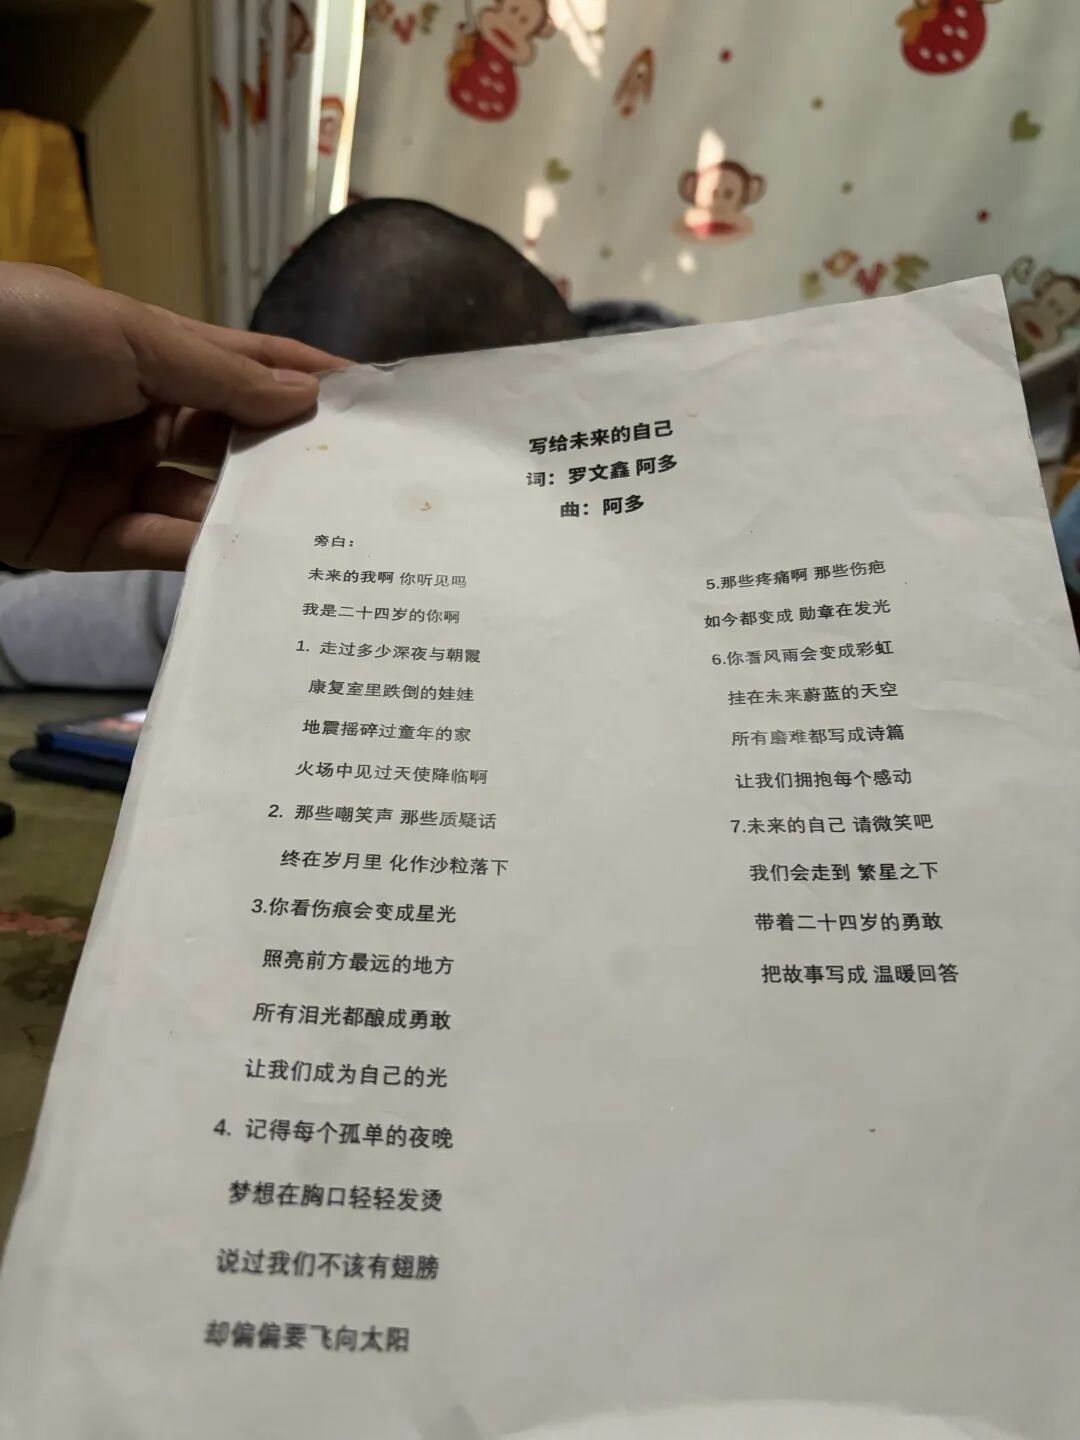 写给未来的自己
词：罗文鑫 阿多
曲：阿多
旁白：
未来的我啊 你听见吗
我是二十四岁的你啊
1. 走过多少深夜与朝霞
康复室里跌倒的娃娃
地震摇碎过童年的家
火场中见过天使降临啊
2. 那些嘲笑声 那些质疑话
终在岁月里 化作沙粒落下
3.你看伤痕会变成星光
照亮前方最远的地方
所有泪光都酿成勇敢
让我们成为自己的光
4. 记得每个孤单的夜晚
梦想在胸口轻轻发烫
说过我们不该有翅膀
却偏偏要飞向太阳
5.那些疼痛啊 那些伤疤
如今都变成 勋章在发光
6.你看风雨会变成彩虹
挂在未来蔚蓝的天空
所有磨难都写成诗篇
让我们拥抱每个感动
7.未来的自己 请微笑吧
我们会走到 繁星之下
带着二十四岁的勇敢
把故事写成 温暖回答